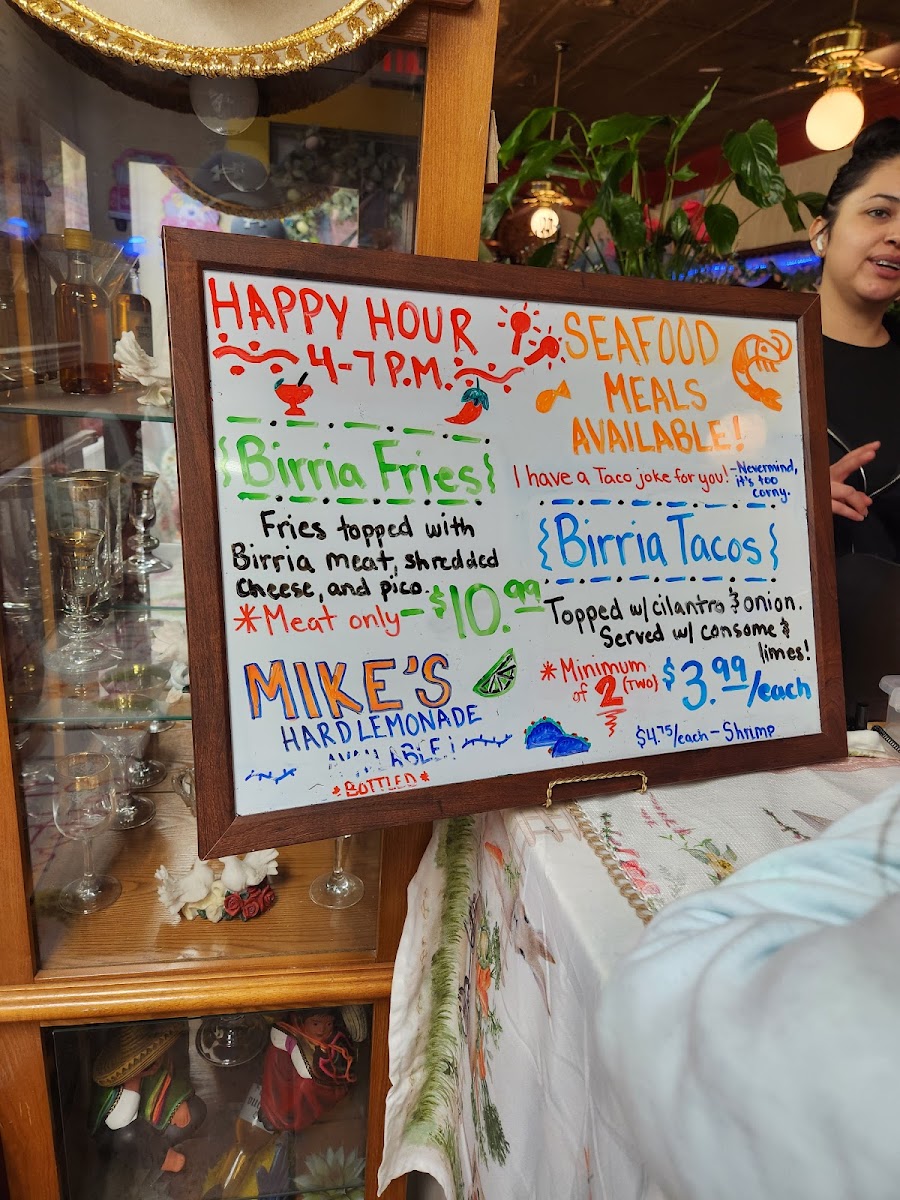 HAPPY HOUR
4-7 P.M.
{Birria Fries}
Fries topped with
Birria meat, shredded
cheese, and pico.
*Meat only - $10.99
MIKE'S
HARD LEMONADE
AVAILABLE!
*BOTTLED*
SEAFOOD
MEALS
AVAILABLE!
I have a Taco joke for you! -Nevermind,
it's too
corny.
{Birria Tacos}
Topped w/cilantro & onion.
Served w/ consome &
limes!
*Minimum
of 2 (TWO)
$3.99/each
$4.75/each - Shrimp